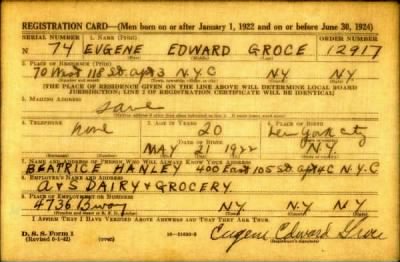 REGISTRATION CARD—(Men born on or after January 1, 1922 and on or before June 30, 1924)
SERIAL NUMBER 1. NAME (Print) ORDER NUMBER
N 74 EUGENE EDWARD GROCE 12917
2. PLACE OF RESIDENCE (Print)
70 West 118 St. apt 3 N.Y.C NY NY
(THE PLACE OF RESIDENCE GIVEN ON THE LINE ABOVE WILL DETERMINE LOCAL BOARD
JURISDICTION; LINE 2 OF REGISTRATION CERTIFICATE WILL BE IDENTICAL)
3. MAILING ADDRESS
Same
4. TELEPHONE 5. AGE IN YEARS
none 20 New York City
DATE OF BIRTH
MAY 21 1922 NY
7. NAME AND ADDRESS OF PERSON WHO WILL ALWAYS KNOW YOUR ADDRESS
BEATRICE HANLEY 400 East 105 St. apt 4C N.Y.C
8. EMPLOYER'S NAME AND ADDRESS
A & S DAIRY & GROCERY
4736 Bway NY NY NY
I AFFIRM THAT I HAVE VERIFIED ABOVE ANSWERS AND THAT THEY ARE TRUE.
D. S. S. Form 1
(Revised 6-1-42) (over) Eugene Edward Groce